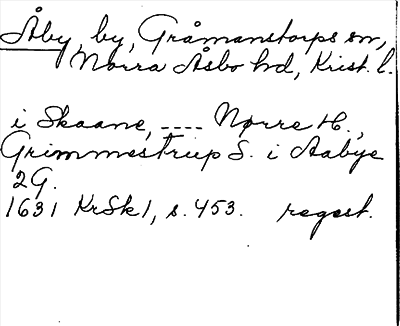 Åby, by, Gråmanstorps sn,
Norra Åsbo hd, Krist. l.
i Skaane, ---- Nørre H.,
Grimmestrup S. i Aabye
2G.
1631 KrSk1, s. 453. regest.